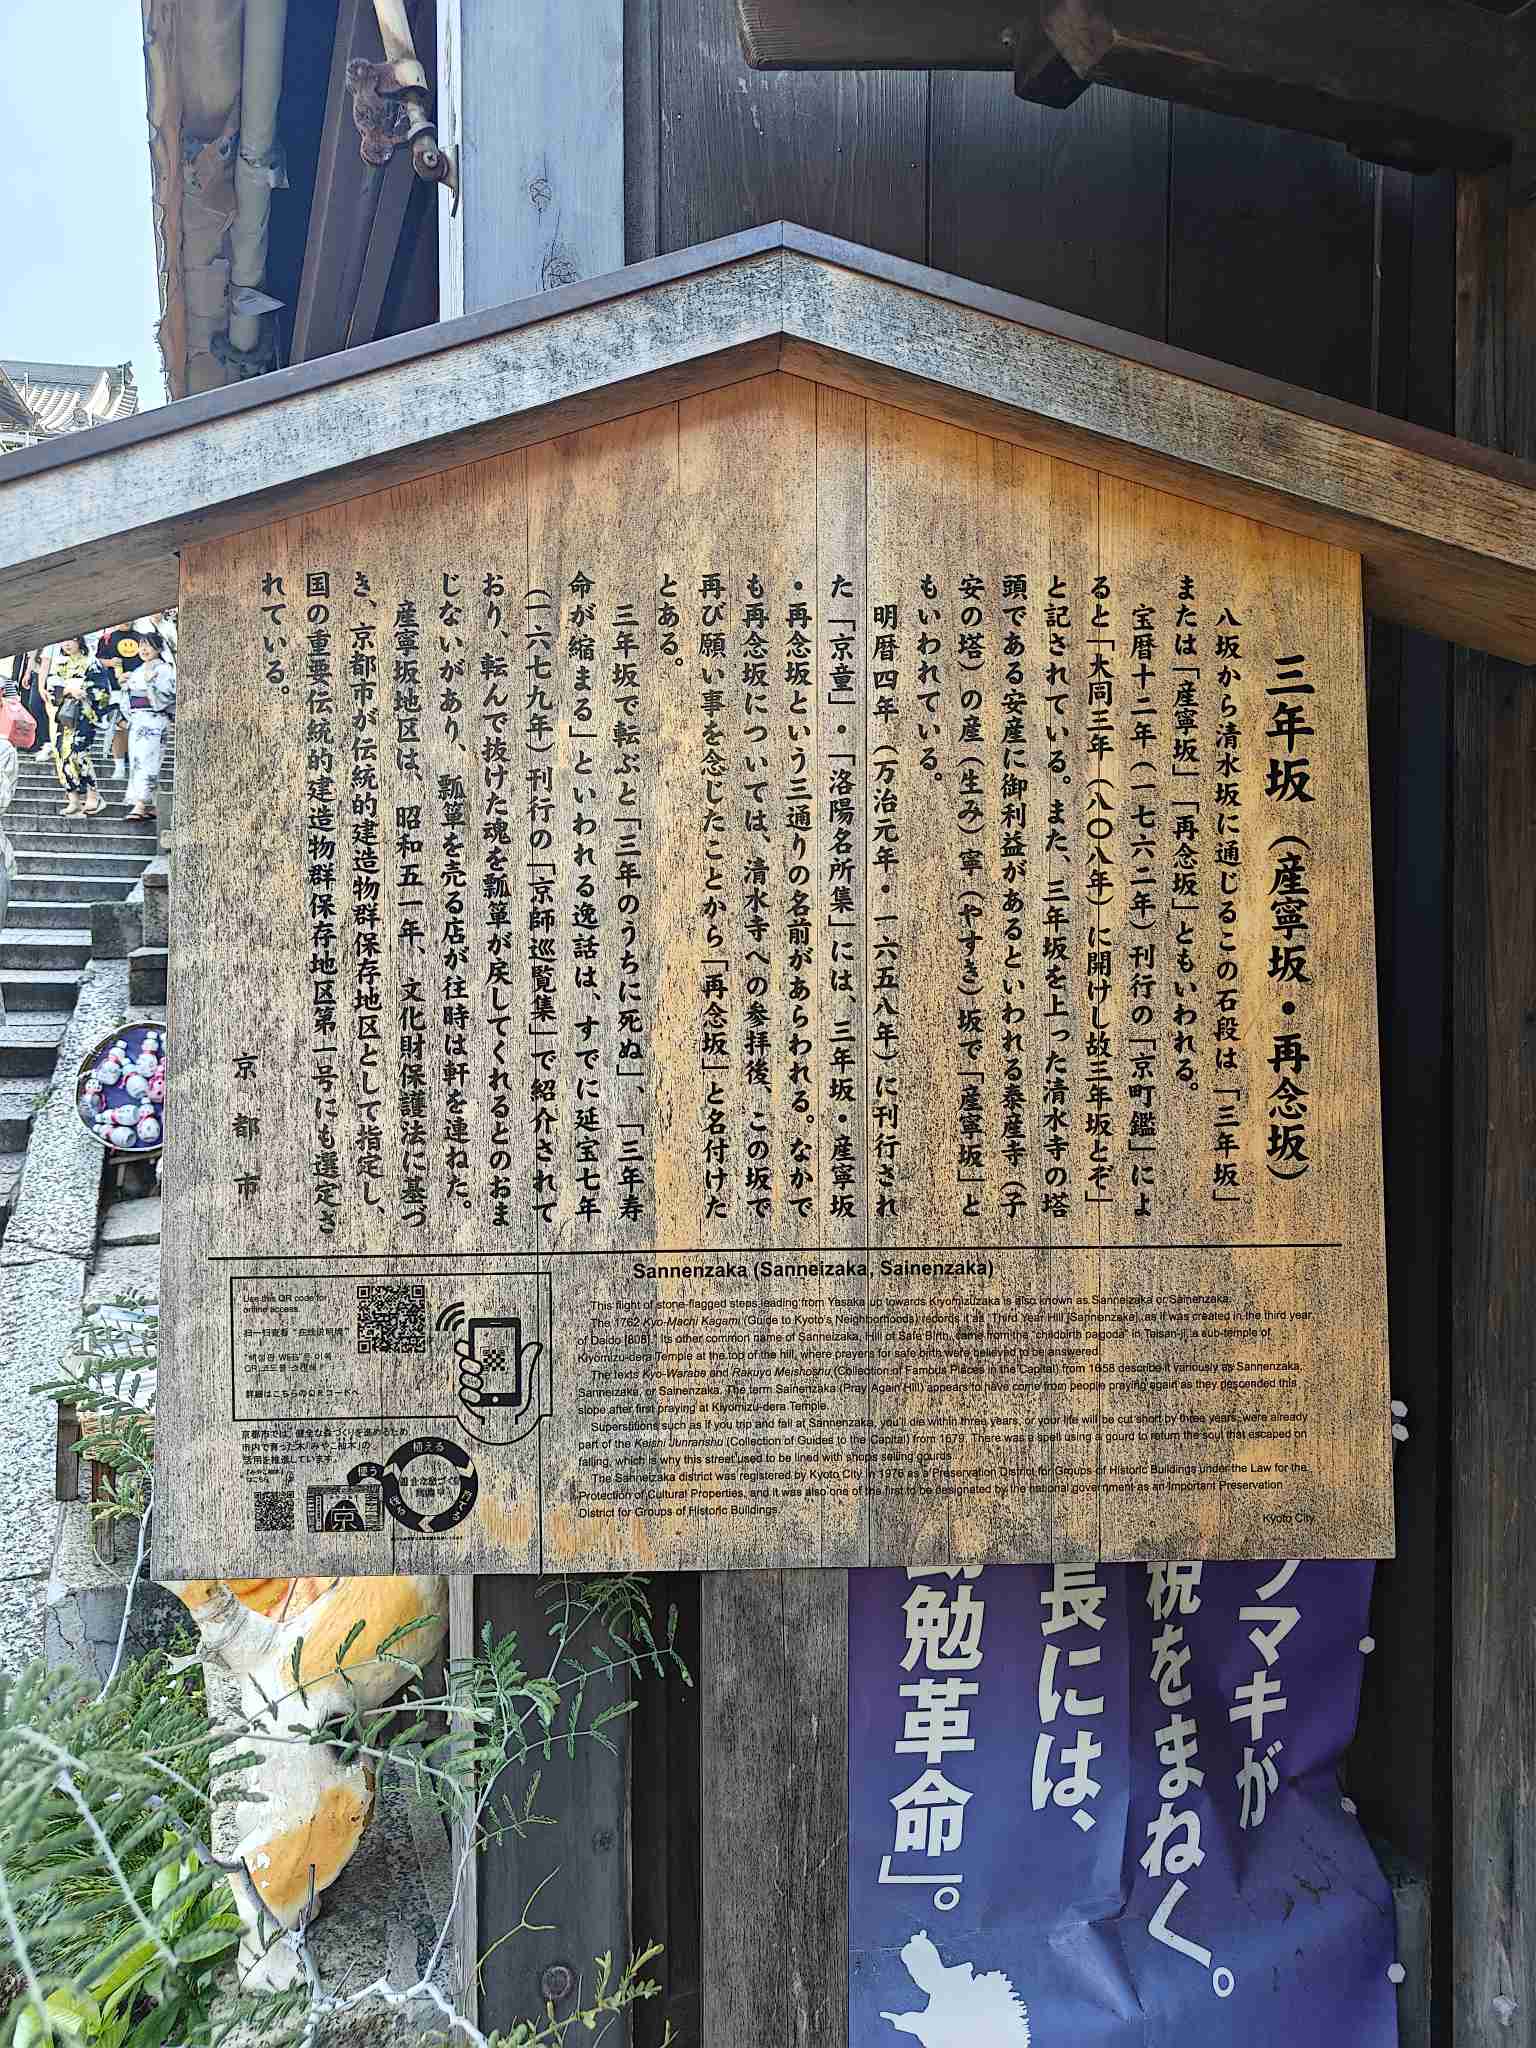 三年坂（産寧坂・再念坂）
八坂から清水坂に通じるこの石段は「三年坂」
または「産寧坂」「再念坂」ともいわれる。
宝暦十二年（一七六二年）刊行の「京町鑑」によ
ると「大同三年（八〇八年）に開けし故三年坂とぞ」
と記されている。また、三年坂を上った清水寺の塔
頭である安産に御利益があるといわれる泰産寺（子
安の塔）の産（生み）寧（やすき）坂で「産寧坂」と
もいわれている。
明暦四年（万治元年・一六五八年）に刊行され
た「京童」・「洛陽名所集」には、三年坂・産寧坂
・再念坂という三通りの名前があらわれる。なかで
も再念坂については、清水寺への参拝後、この坂で
再び願い事を念じたことから「再念坂」と名付けた
とある。
三年坂で転ぶと「三年のうちに死ぬ」、「三年寿
命が縮まる」といわれる逸話は、すでに延宝七年
（一六七九年）刊行の「京師巡覧集」で紹介されて
おり、転んで抜けた魂を瓢箪が戻してくれるとのおま
じないがあり、瓢箪を売る店が往時は軒を連ねた。
産寧坂地区は、昭和五一年、文化財保護法に基づ
き、京都市が伝統的建造物群保存地区として指定し、
国の重要伝統的建造物群保存地区第一号にも選定さ
れている。
京都市
Sannenzaka (Sanneizaka, Sainenzaka)
This flight of stone-flagged steps leading from Yasaka up towards Kiyomizuzaka is also known as Sanneizaka or Sainenzaka.
The 1762 Kyo-Machi Kagami (Guide to Kyoto's Neighborhoods) records it as "Third Year Hill [Sannenzaka], as it was created in the third year
of Daido [808]." Its other common name of Sanneizaka, Hill of Safe Birth, came from the "childbirth pagoda" in Taisan-ji, a sub-temple of
Kiyomizu-dera Temple at the top of the hill, where prayers for safe birth were believed to be answered.
The texts Kyo-Warabe and Rakuyo Meishoshu (Collection of Famous Places in the Capital) from 1658 describe it variously as Sannenzaka,
Sanneizaka, or Sainenzaka. The term Sainenzaka (Pray Again Hill) appears to have come from people praying again as they descended this
slope after first praying at Kiyomizu-dera Temple.
Superstitions such as if you trip and fall at Sannenzaka, you'll die within three years, or your life will be cut short by three years, were already
part of the Keishi Junranshu (Collection of Guides to the Capital) from 1679. There was a spell using a gourd to return the soul that escaped on
falling, which is why this street used to be lined with shops selling gourds.
The Sanneizaka district was registered by Kyoto City in 1976 as a Preservation District for Groups of Historic Buildings under the Law for the
Protection of Cultural Properties, and it was also one of the first to be designated by the national government as an Important Preservation
District for Groups of Historic Buildings.
Kyoto City
Use this QR code for
online access.
扫一扫查看"在线说明牌"
詳細はこちらのQRコードへ
京都市では、健全な森づくりを進めるため
市内で育った木「みやこ杣木」の
活用を推進しています。
植える
京
マキが
税をまねく。
長には、
勤勉革命」。